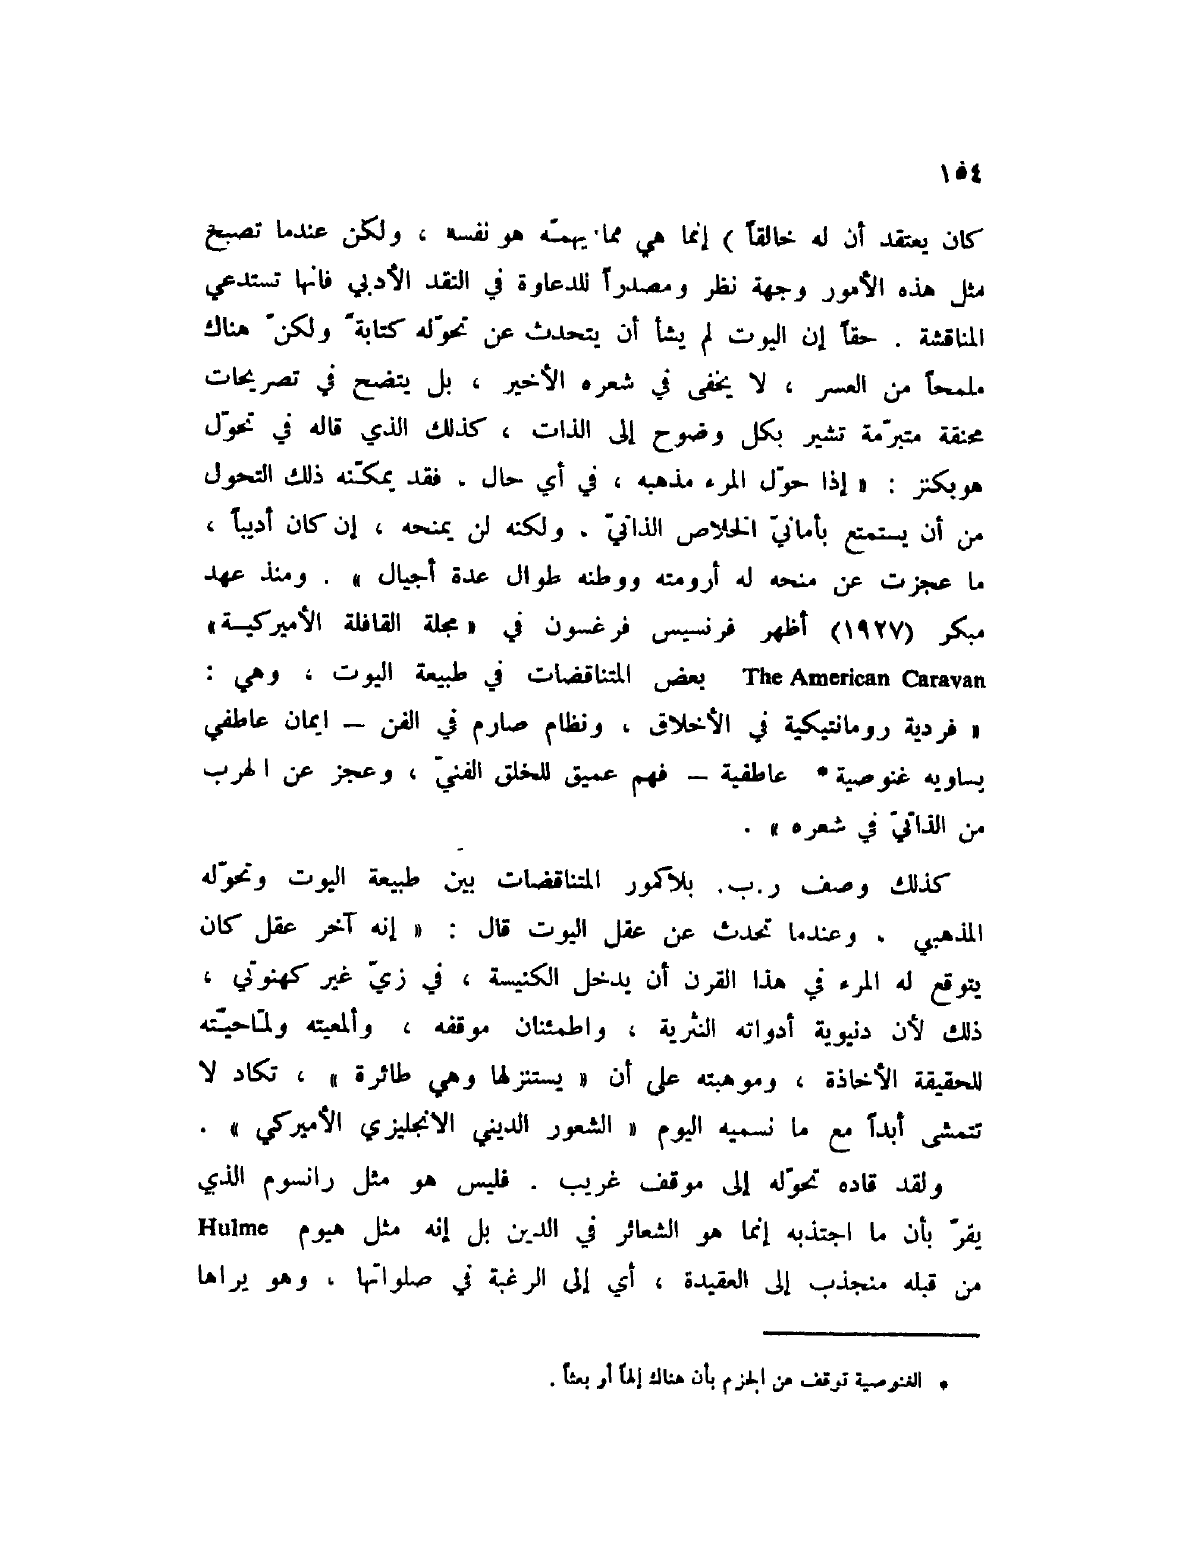 ١٥٤
كان يعتقد أن له خالقاً ) إنما هي مما يهمّه هو نفسه ، ولكن عندما تصبح
مثل هذه الأمور وجهة نظر ومصدراً للدعاوة في النقد الأدبي فانها تستدعي
المناقشة . حقاً إن اليوت لم يشأ أن يتحدث عن تحوّله كتابةً ولكنّ هناك
ملمحاً من العسر ، لا يخفى في شعره الأخير ، بل يتضح في تصريحات
محنقة متبرّمة تشير بكل وضوح إلى الذات ، كذلك الذي قاله في تحوّل
هوبكنز : « إذا حوّل المرء مذهبه ، في أي حال . فقد يمكّنه ذلك التحول
من أن يستمتع بأمانيّ الخلاص الذاتيّ . ولكنه لن يمنحه ، إن كان أديباً ،
ما عجزت عن منحه له أرومته ووطنه طوال عدة أجيال » . ومنذ عهد
مبكر (١٩٢٧) أظهر فرنسيس فرغسون في « مجلة القافلة الأميركيــة »
The American Caravan بعض المتناقضات في طبيعة اليوت ، وهي :
« فردية رومانتيكية في الأخلاق ، ونظام صارم في الفن – ايمان عاطفي
يساويه غنوصية* عاطفية – فهم عميق للخلق الفنيّ ، وعجز عن الهرب
من الذاتيّ في شعره » .
كذلك وصف ر.ب. بلاكمور المتناقضات بين طبيعة اليوت وتحوّله
المذهبي . وعندما تحدث عن عقل اليوت قال : « إنه آخر عقل كان
يتوقع له المرء في هذا القرن أن يدخل الكنيسة ، في زيّ غير كهنوتّي ،
ذلك لأن دنيوية أدواته النثرية ، واطمئنان موقفه ، وألمعيته ولمّاحيّته
للحقيقة الأخاذة ، وموهبته على أن « يستنزلها وهي طائرة » ، تكاد لا
تتمشى أبداً مع ما نسميه اليوم « الشعور الديني الانجليزي الأميركي » .
ولقد قاده تحوّله إلى موقف غريب . فليس هو مثل رانسوم الذي
يقرّ بأن ما اجتذبه إنما هو الشعائر في الدين بل إنه مثل هيوم Hulme
من قبله منجذب إلى العقيدة ، أي إلى الرغبة في صلواتها . وهو يراها
* الغنوصية توقف عن الجزم بأن هناك إلهاً أو بعثاً .